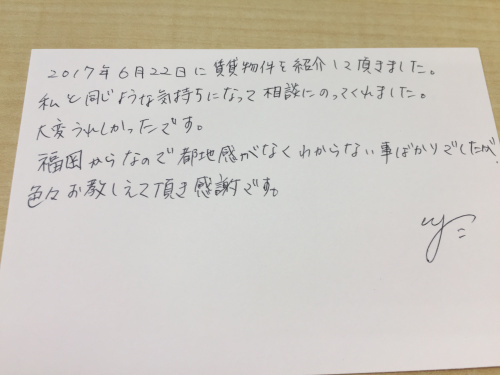 2017年6月22日に賃貸物件を紹介して頂きました。
私と同じような気持ちになって相談にのってくれました。
大変うれしかったです。
福岡からなので都地感がなくわからない事ばかりでしたが、
色々お教しえて頂き感謝です。